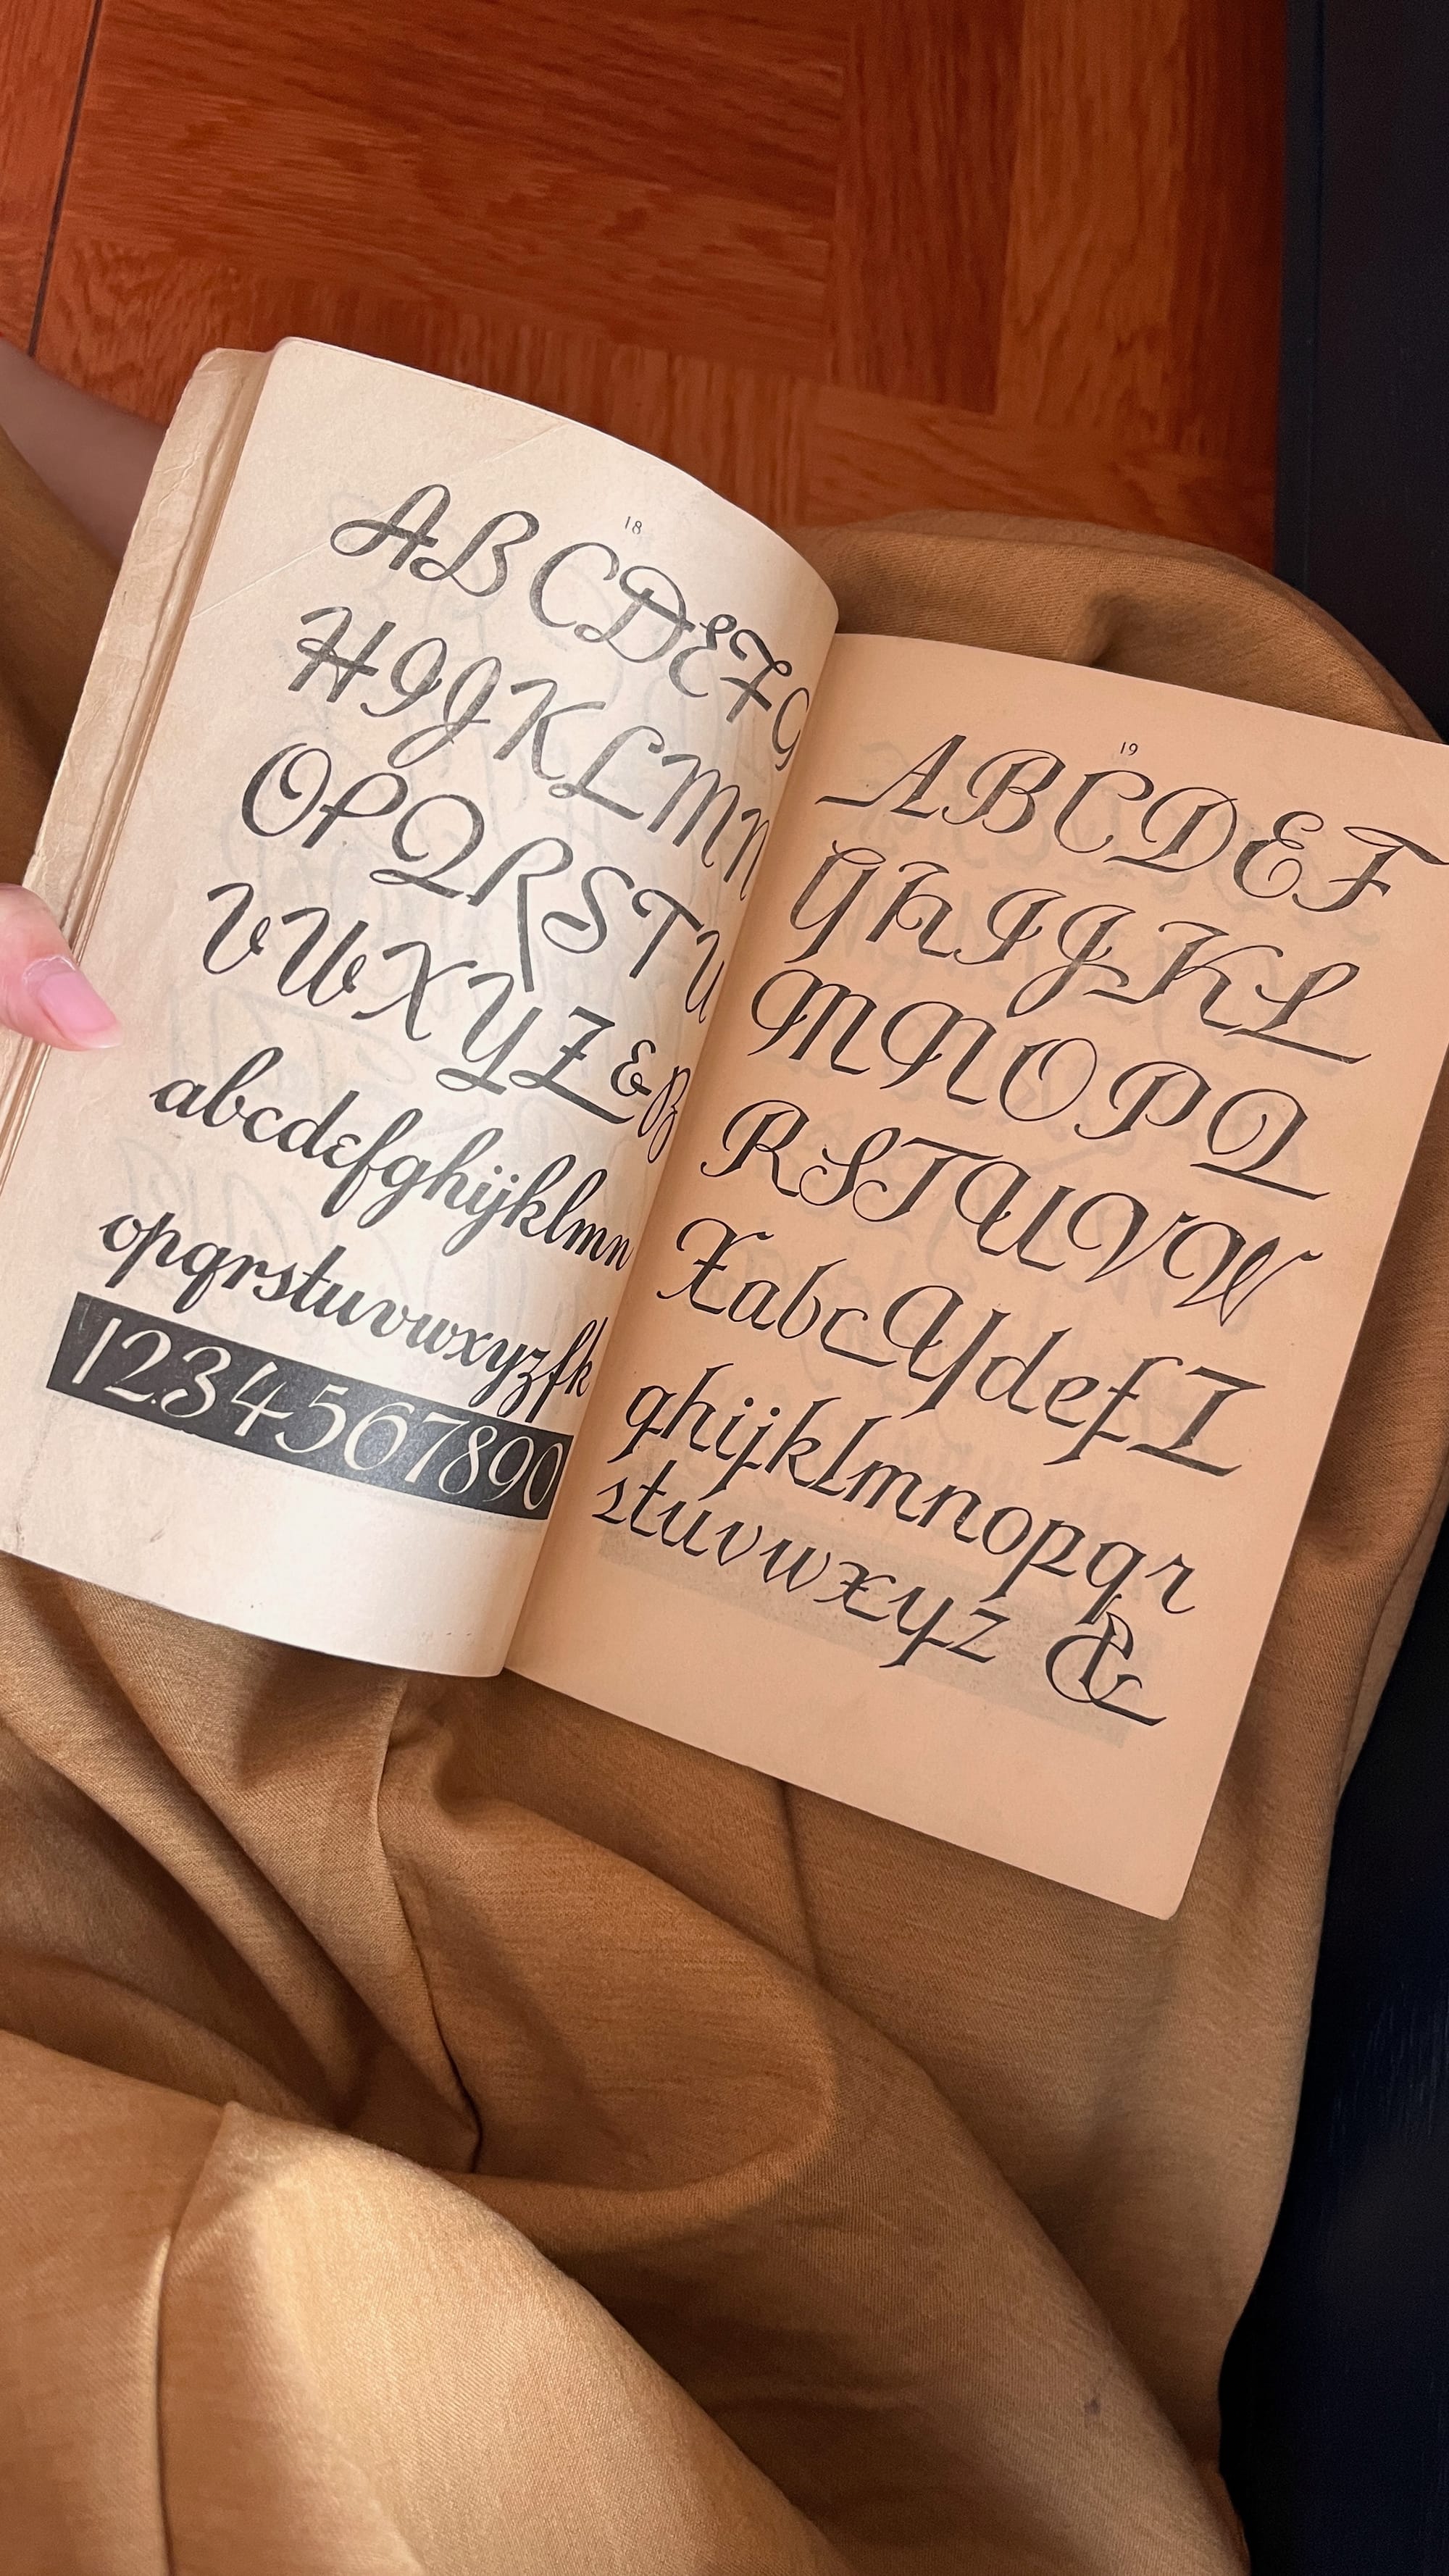 18
ABCDEFG
HIJKLMN
OPQRSTU
VWXYZ&B
abcdefghijklmn
opqrstuvwxyzfk
1234567890
19
ABCDEF
GHIJKL
MNOPQ
RSTUVW
XabcYdefZ
ghijklmnopqr
stuvwxyz &